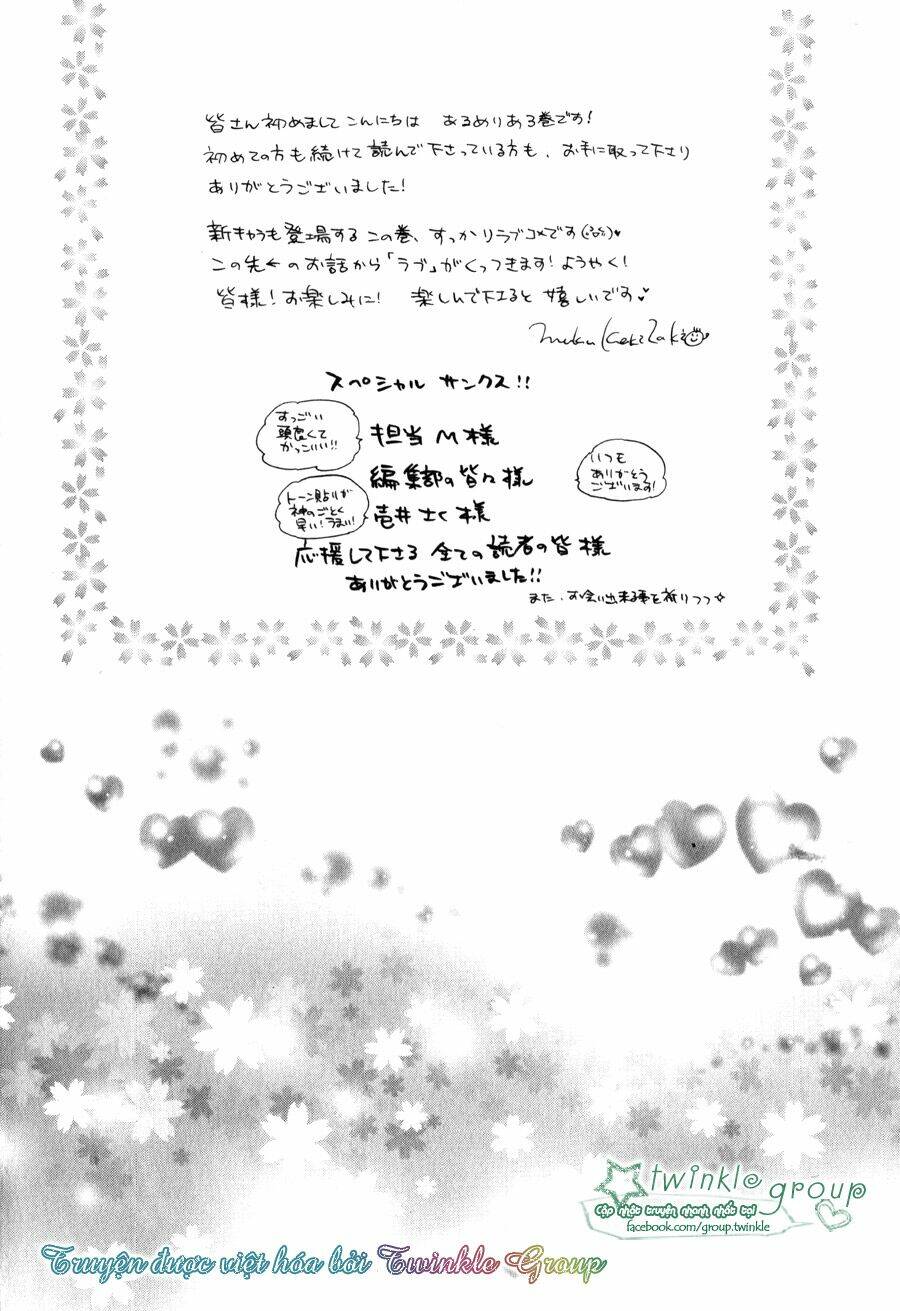 皆さん初めまして こんにちは あるめりあ3巻です!
初めての方も続けて読んで下さっている方も、お手に取って下さり
ありがとうございました!
新キャラも登場するこの巻、すっかりラブコメです
この先々のお話から「ラブ」がくっつきます!ようやく!
皆様!お楽しみに! 楽しんで下さると嬉しいです♥
スペシャル サンクス!!
すっごい
頭良くて
かっこいい!!
担当 M様
編集部の皆々様
いつも
ありがとう
ございます!
トーン貼りが
神のごとく
早い!うまい!
壱井さく様
応援して下さる 全ての読者の皆様
ありがとうございました!!
また、お会い出来る事を祈りつつ☆
twinkle group
Cập nhật truyện nhanh nhất tại
facebook.com/group.twinkle
Truyện được việt hóa bởi Twinkle Group